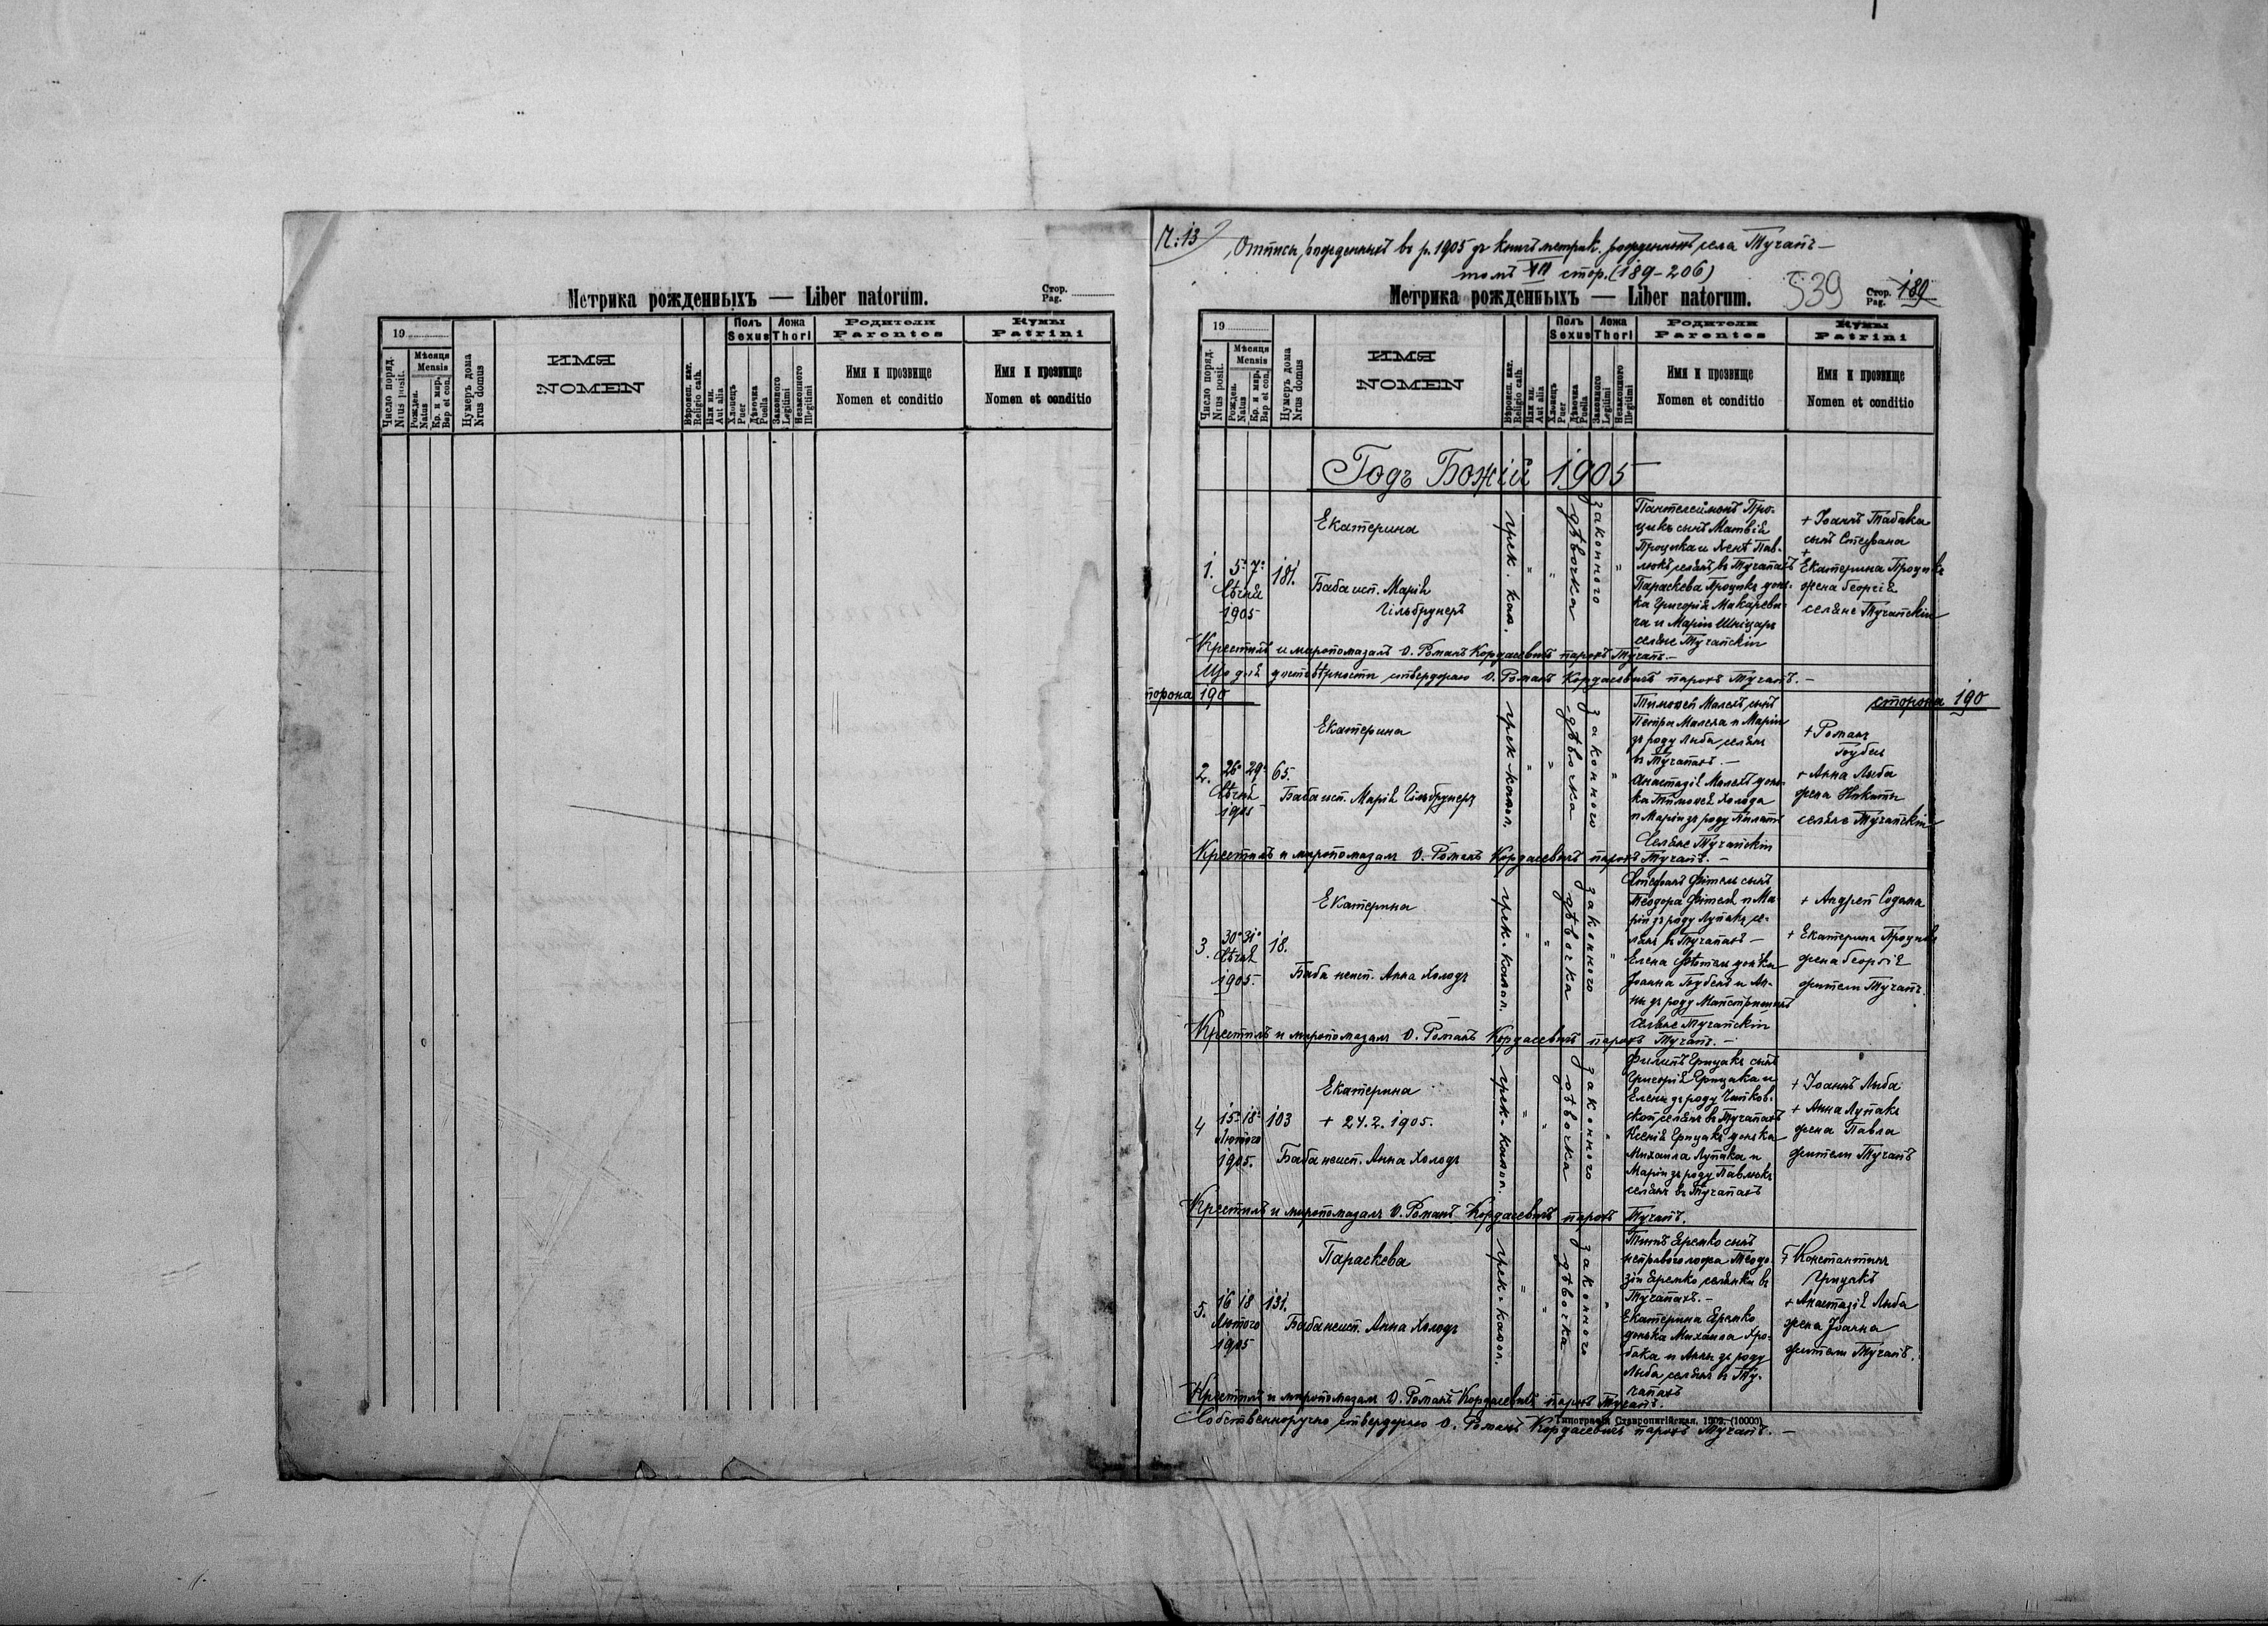 Метрика рожденныхъ — Liber natorum.
Стор.
Pag.
19
Число поряд.
Nrus posit.
Мѣсяця
Mensis
Рожден.
Natus
Кр. и мир.
Bap et con.
Нумеръ дома
Nrus domus
ИМЯ
NOMEN
Вѣроисп. кат.
Religio cath.
Или ин.
Aut alia
Полъ
Sexus
Хлопецъ
Puer
Дѣвочка
Puella
Ложа
Thori
Законного
Legitimi
Незаконного
Illegitimi
Родители
Parentes
Имя и прозвище
Nomen et conditio
Кумы
Patrini
Имя и прозвище
Nomen et conditio
Ч: 13
Отпись рожденныхъ въ р. 1905 зъ книгъ метрик. рожденныхъ села Тучапъ —
томъ VII стор. (189-206)
Метрика рожденныхъ — Liber natorum.
539
Стор.
Pag.
189
19
Число поряд.
Nrus posit.
Мѣсяця
Mensis
Рожден.
Natus
Кр. и мир.
Bap et con.
Нумеръ дома
Nrus domus
ИМЯ
NOMEN
Вѣроисп. кат.
Religio cath.
Или ин.
Aut alia
Полъ
Sexus
Хлопецъ
Puer
Дѣвочка
Puella
Ложа
Thori
Законного
Legitimi
Незаконного
Illegitimi
Родители
Parentes
Имя и прозвище
Nomen et conditio
Кумы
Patrini
Имя и прозвище
Nomen et conditio
Годъ Божій 1905
1.
5. 7.
Сѣчня
1905
181.
Екатерина
Баба исп. Марія
Гільбрунеръ
грек. кат.
дѣвочка
законного
Пантелеймонъ Про-
цикъ сынъ Матвія
Процика и Пав-
люкъ селянъ въ Тучапахъ
Параскева Процикъ донь-
ка Григорія Макареви-
ча и Маріи Шніцаръ
селяне Тучапскіи
+ Іоаннъ Табака
сынъ Стефана
+
Екатерина Процикъ
жена Георгія
селяне Тучапскіи
Крестилъ и миропомазалъ о. Романъ Кордасевичъ парохъ Тучапъ. —
Що для достовѣрности ствердżаю о. Романъ Кордасевичъ парохъ Тучапъ. —
сторона 190
сторона 190
2.
26. 29.
Сѣчня
1905
65.
Екатерина
Баба исп. Марія Гільбрунеръ
грек-катол.
дѣвочка
законного
Тимофей Малехъ сынъ
Петра Малеха и Маріи
зъ роду Лыба селянъ
въ Тучапахъ. —
Анастазія Малехъ донь-
ка Тимофея Холода
и Маріи зъ роду Пилатъ
Селяне Тучапскіи
+ Романъ
Губень
+ Анна Лыба
жена Никиты
селяне Тучапскіи
Крестилъ и миропомазалъ о. Романъ Кордасевичъ парохъ Тучапъ. —
3.
30. 31.
Сѣчня
1905.
18.
Екатерина
Баба неисп. Анна Холодъ
грек-катол.
дѣвочка
законного
Стефанъ Фітель сынъ
Теодора Фітель и Ма-
ріи зъ роду Лупакъ се-
лянъ въ Тучапахъ —
Елена Фітель донька
Іоанна Губеня и Ан-
ны зъ роду
Селяне Тучапскіи
+ Андрей Содома
+ Екатерина Процикъ
жена Георгія
жители Тучапъ.
Крестилъ и миропомазалъ о. Романъ Кордасевичъ парохъ Тучапъ. —
4
15. 18.
Лютого
1905.
103
Екатерина
+ 27.2.1905.
Баба неисп. Анна Холодъ
грек-катол.
дѣвочка
законного
Филипъ Грицакъ сынъ
Григорія Грицака и
Елены зъ роду Чайков-
ской селянъ въ Тучапахъ
Ксенія Грицакъ донька
Михаила Лупака и
Маріи зъ роду Павлюкъ
селянъ въ Тучапахъ
+ Іоаннъ Лыба
+ Анна Лупакъ
жена Павла
жители Тучапъ
Крестилъ и миропомазалъ о. Романъ Кордасевичъ парохъ Тучапъ.
5.
16 18
Лютого
1905
131.
Параскева
Баба неисп. Анна Холодъ
грек-катол.
дѣвочка
законного
Титъ Яремко сынъ
неправого ложа Теодо-
зіи Яремко селянки въ
Тучапахъ. —
Екатерина Яремко
донька Михаила Хро-
бака и Анны зъ роду
Лыба селянъ въ Ту-
чапахъ
+ Константинъ
Грицакъ
+ Анастазія Лыба
жена Іоанна
жители Тучапъ.
Крестилъ и миропомазалъ о. Романъ Кордасевичъ парохъ Тучапъ.
Типографія Ставропигійская, 1902. (10000)
Собственноручно ствержаю о. Романъ Кордасевичъ парохъ Тучапъ. —